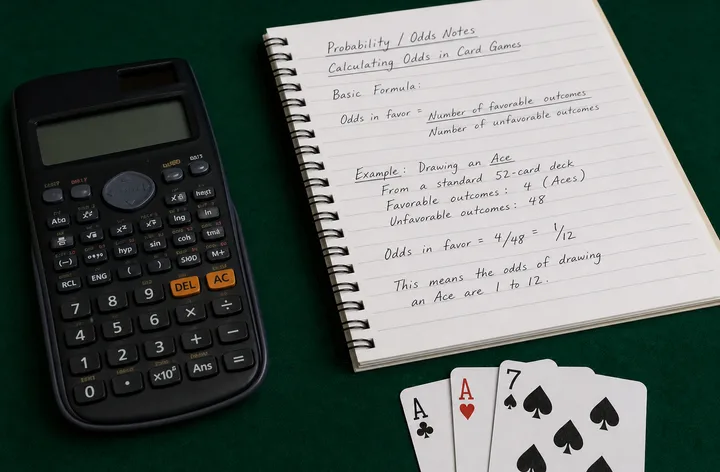 Probability / Odds Notes
Calculating Odds in Card Games
Basic Formula:
Odds in favor = Number of favorable outcomes
Number of unfavorable outcomes
Example: Drawing an Ace
From a standard 52-card deck
Favorable outcomes: 4 (Aces)
Unfavorable outcomes: 48
Odds in favor = 4/48 = 1/12
This means the odds of drawing
an Ace are 1 to 12.
(−) hyp sin
RCL ENG ( ) M+
7 8 9 DEL AC
4 5 6 × ÷
1 2 3 + −
0 . Ans =
A A 7